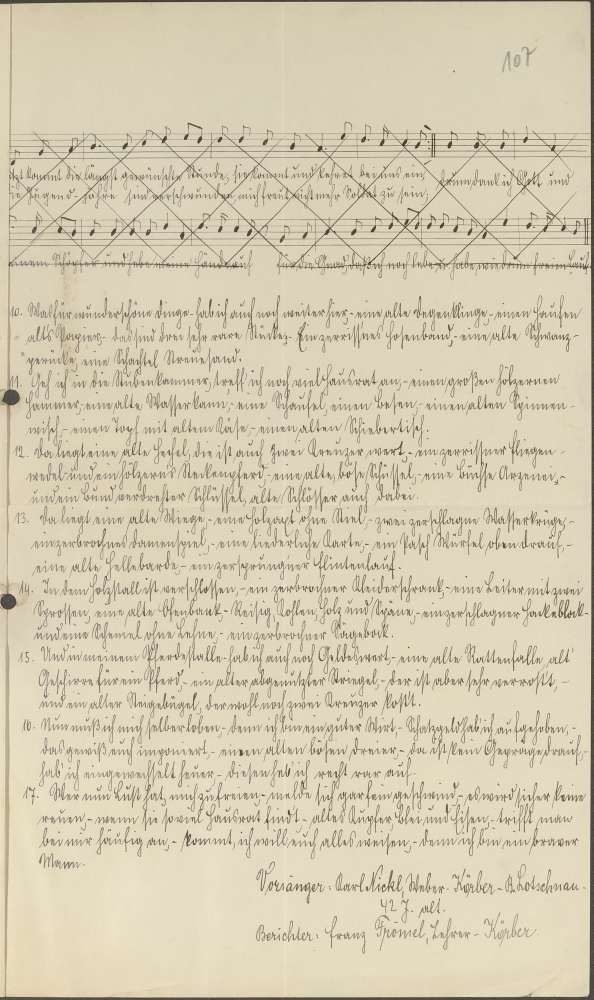 107
jetzt kommt die längst gewünschte Stunde, sie kommt und kehret bei uns ein, drum dank ich Gott und
die Jugendjahre sind verschwunden, mich freut nicht mehr Soldat zu sein,
meinem Schöpfer und hebe meine Hände auf für die Gnad, daß ich noch lebe, habe wiedrum freien Lauf.
10. Was für wunderschöne Dinge - hab ich auch noch weiter hier, - eine alte Degenklinge, - einen Haufen
alt's Papier, - das sind drei sehr rare Stücke, - Ein zerrissnes Hosenband, - eine alte Schwanz-
perücke, eine Schachtel Streuesand.
11. Geh ich in die Stubenkammer, treff' ich noch viel Hausrat an, - einen großen hölzernen
Hammer, - eine alte Wasserkann, - eine Schaufel, einen Besen, - einen alten Spinnen-
wisch, - einen Topf mit altem Käse, - einen alten Schiebertisch.
12. Da liegt eine alte Hechel, die ist auch zwei Kreuzer wert, - ein zerrissner Fliegen-
wedel und ein hölzerns Steckenpferd, - eine alte, böse Schüssel, - eine Büchse Arzenei, -
und ein Bund verdrehter Schlüssel, alte Schlösser auch dabei.
13. Da liegt eine alte Wiege, - eine Holzaxt ohne Stiel, - zwei zerschlagne Wasserkrüge, -
ein zerbrochnes Damenspiel, - eine liederliche Karte, - ein Pasch Würfel oben drauf, -
eine alte Hellebarde, - ein zersprungner Flintenlauf.
14. In dem Holzstall ist verschlossen, - ein zerbrochner Kleiderschrank, - eine Leiter mit zwei
Sprossen, eine alte Ofenbank, - Reisig, Kohlen, Holz und Späne, - ein zerschlagner Hackeblock -
und eine Schemel ohne Lehne, - ein zerbrochner Sägebock.
15. Und in meinem Pferdestalle - hab ich auch noch Geldeswert, - eine alte Rattenfalle, alt'
Geschirre für ein Pferd, - ein alter abgenutzter Striegel, - der ist aber sehr verrost't, -
und ein alter Steigebügel, der wohl noch zwei Kreuzer kost't.
16. Nun muß ich mich selber loben, - denn ich bin ein guter Wirt, - Schatzgeld hab' ich aufgehoben, -
das gewiß euch imponiert, - einen alten bösen Dreier, - da ist kein Gepräge drauf, -
hab' ich eingewechselt heuer - diesen heb' ich recht rar auf.
17. Wer nun Lust hat, mich zu freien, - melde sich gar fein geschwind, - es wird sicher keine
reuen, - wenn sie soviel Hausrat find't - altes Kupfer, Blei und Eisen, - trifft man
bei mir häufig an, - kommt, ich will euch alles weisen, - denn ich bin ein braver
Mann.
Vorsänger: Karl Nickl, Weber - Körber - B. Lotschnau -
42 J. alt.
Berichter: Franz Frömel, Lehrer - Körber.